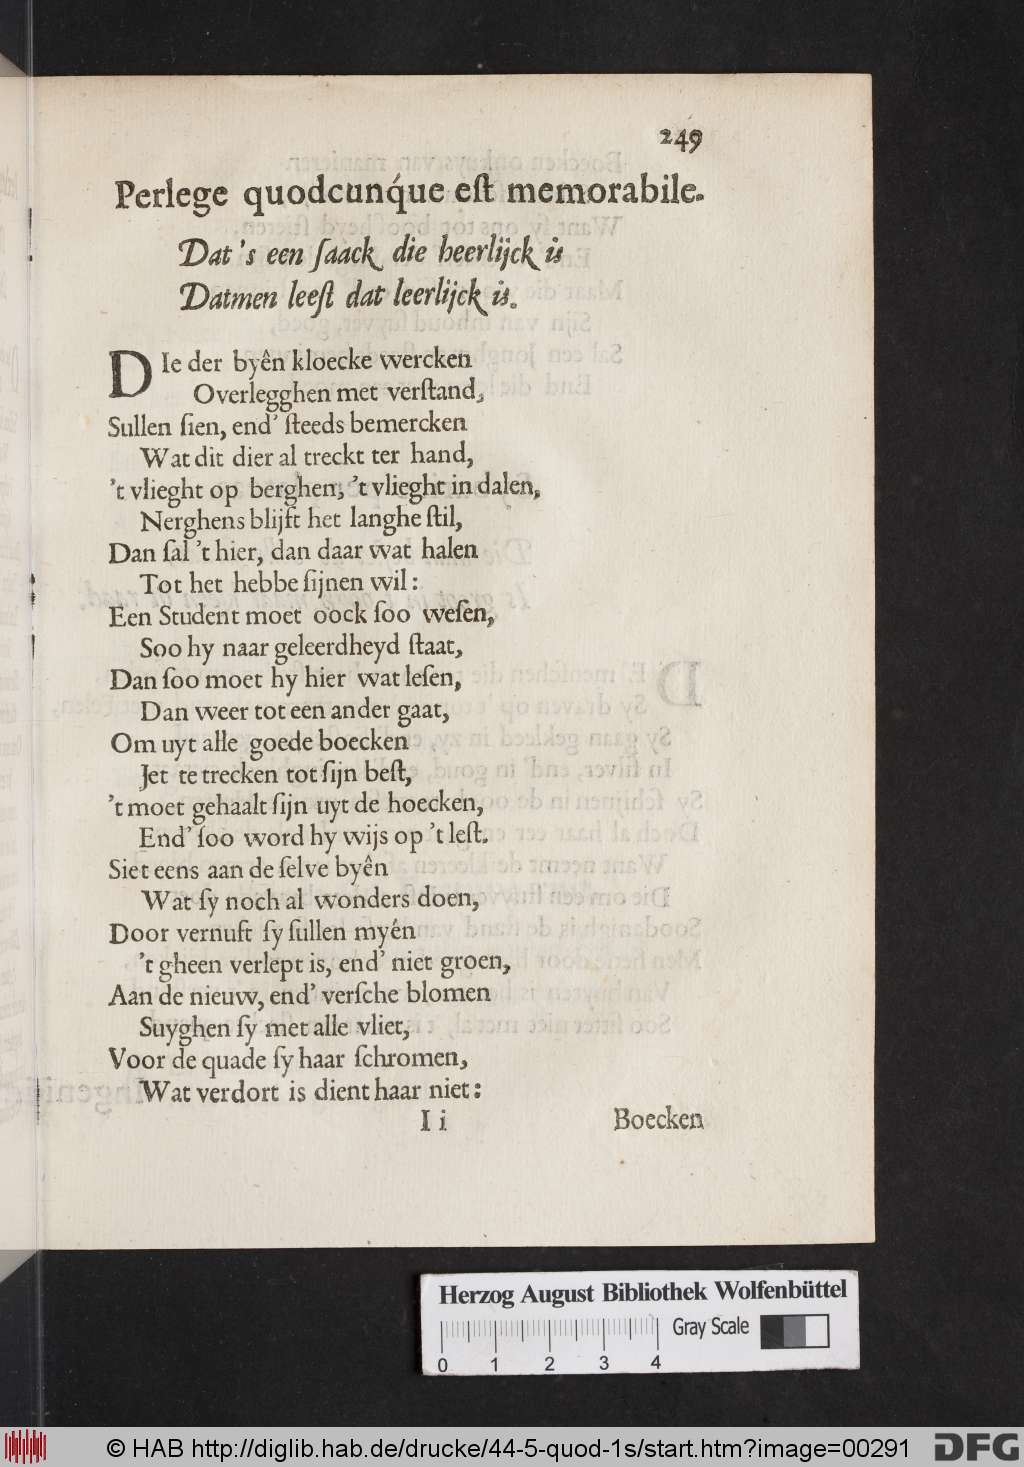 249
Perlege quodcunq́ue eſt memorabile.
Dat 's een ſaack die heerlijck is
Datmen leeſt dat leerlijck is.
DIe der byên kloecke wercken
Overlegghen met verſtand,
Sullen ſien, end' ſteeds bemercken
Wat dit dier al treckt ter hand,
't vlieght op berghen, 't vlieght in dalen,
Nerghens blijft het langhe ſtil,
Dan ſal 't hier, dan daar wat halen
Tot het hebbe ſijnen wil:
Een Student moet oock ſoo weſen,
Soo hy naar geleerdheyd ſtaat,
Dan ſoo moet hy hier wat leſen,
Dan weer tot een ander gaat,
Om uyt alle goede boecken
Jet te trecken tot ſijn beſt,
't moet gehaalt ſijn uyt de hoecken,
End' ſoo word hy wijs op 't leſt.
Siet eens aan de ſelve byên
Wat ſy noch al wonders doen,
Door vernuft ſy ſullen myén
't gheen verlept is, end' niet groen,
Aan de nieuw, end' verſche blomen
Suyghen ſy met alle vliet,
Voor de quade ſy haar ſchromen,
Wat verdort is dient haar niet:
I i Boecken
Herzog August Bibliothek Wolfenbüttel
Gray Scale
0 1 2 3 4
© HAB http://diglib.hab.de/drucke/44-5-quod-1s/start.htm?image=00291 DFG